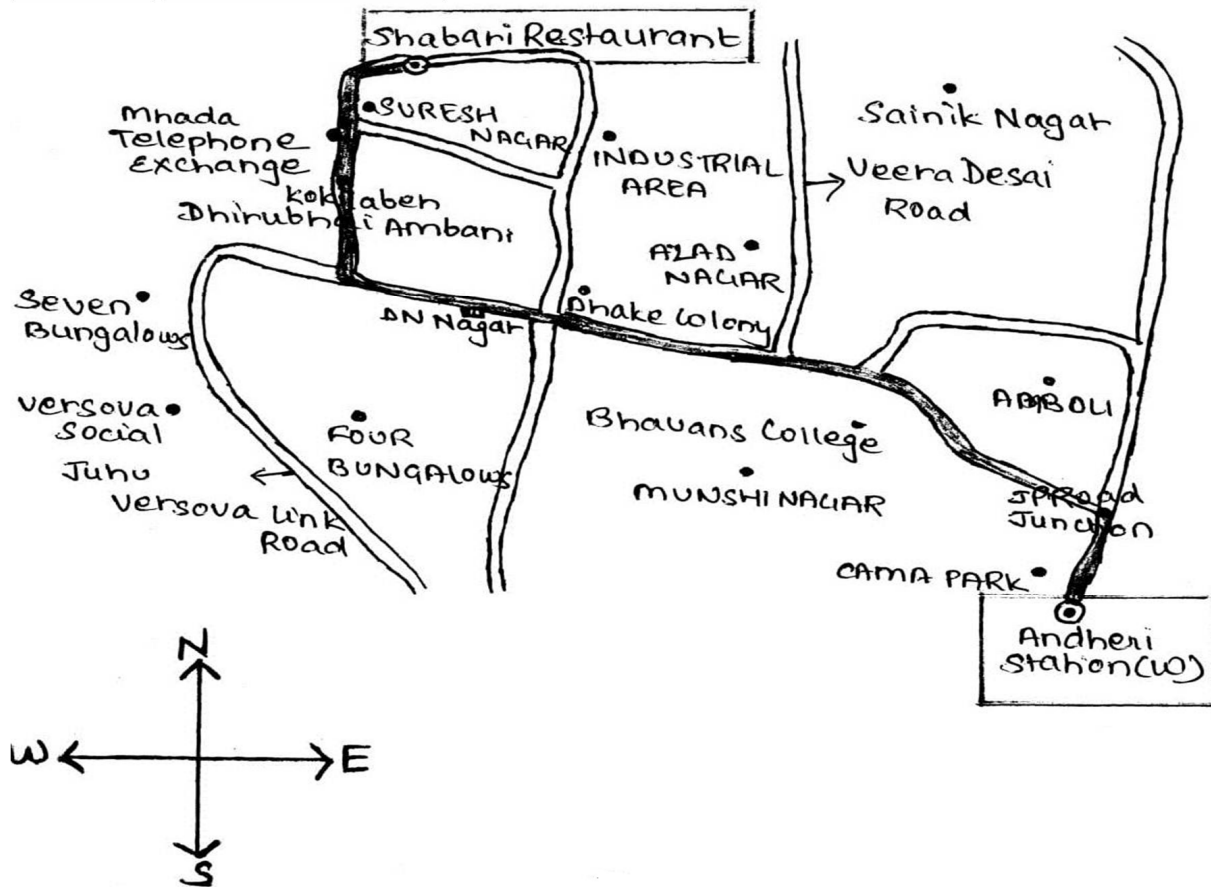 Shabari Restaurant
SURESH
NAGAR
Mhada
Telephone
Exchange
Kokilaben
Dhirubhai Ambani
INDUSTRIAL
AREA
Sainik Nagar
Veera Desai
Road
AZAD
NAGAR
Seven
Bungalows
DN Nagar
Dhake Colony
Versova
Social
Juhu
Versova Link
Road
FOUR
BUNGALOWS
Bhavans College
MUNSHI NAGAR
AMBOLI
JP Road
Junction
CAMA PARK
Andheri
Station(W)
N
W
E
S